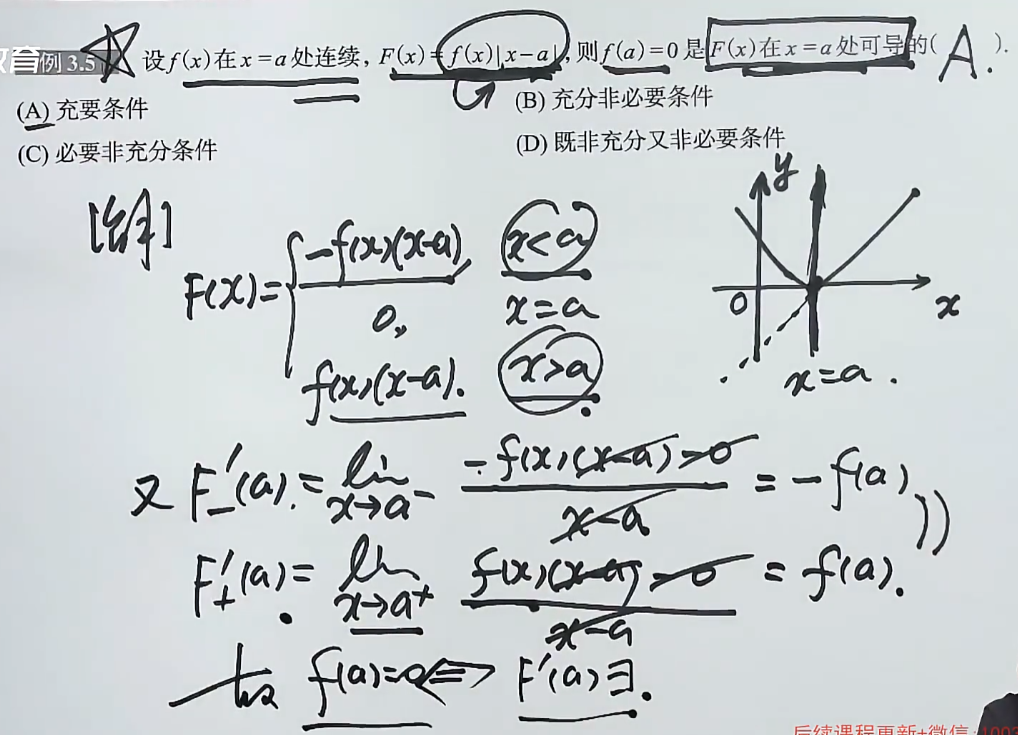 教育 例 3.5 设 f(x) 在 x=a 处连续, F(x)=f(x)|x-a|, 则 f(a)=0 是 F(x) 在 x=a 处可导的( A. ).
(A) 充要条件
(B) 充分非必要条件
(C) 必要非充分条件
(D) 既非充分又非必要条件
F(x)= -f(x)(x-a), x<a
0, x=a
f(x)(x-a). x>a
y
0 x
x=a.
又 F'₋(a)=lim x→a⁻ (-f(x)(x-a)-0)/(x-a) = -f(a)
F'₊(a)=lim x→a⁺ (f(x)(x-a)-0)/(x-a) = f(a).
故 f(a)=0 ⟺ F'(a)∃.
后续课程更新+微信:1003